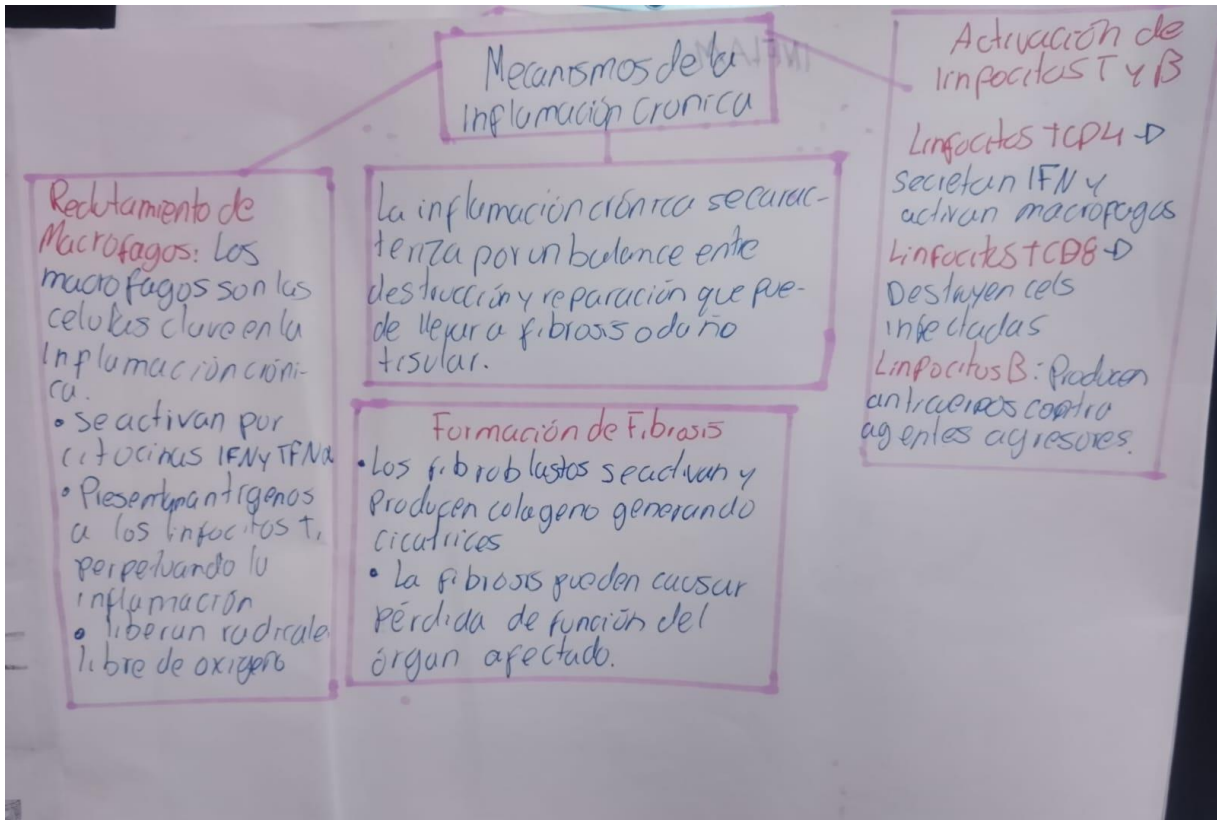 Mecanismos de la
Inflamación Cronica
Reclutamiento de
Macrofagos: Los
macrofagos son las
celulas clave en la
Inflamación cróni-
ca.
• se activan por
citocinas IFN y TFNα
• Presentan antigenos
a los linfocitos t,
perpetuando la
inflamación
• liberan radicale
libre de oxigeno
La inflamación crónica se carac-
teriza por un balance ente
destrucción y reparación que pue-
de llevar a fibrosis o daño
tisular.
Formación de Fibrosis
• Los fibroblastos se activan y
Producen colageno generando
cicatrices
• La fibrosis pueden causar
Pérdida de función del
órgan afectado.
Activación de
linfocitos T y B
Linfocitos TCD4 →
secretan IFN y
activan macrofagos
Linfocitos TCD8 →
Destruyen cels
infectadas
Linfocitos B: Producen
contra
agentes agresores.